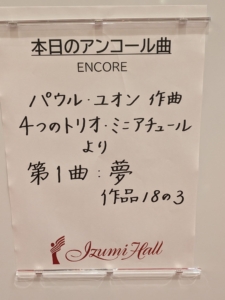 本日のアンコール曲
ENCORE
パウル・ユオン 作曲
4つのトリオ・ミニアチュール
より
第1曲:夢
作品18の3
Izumi Hall